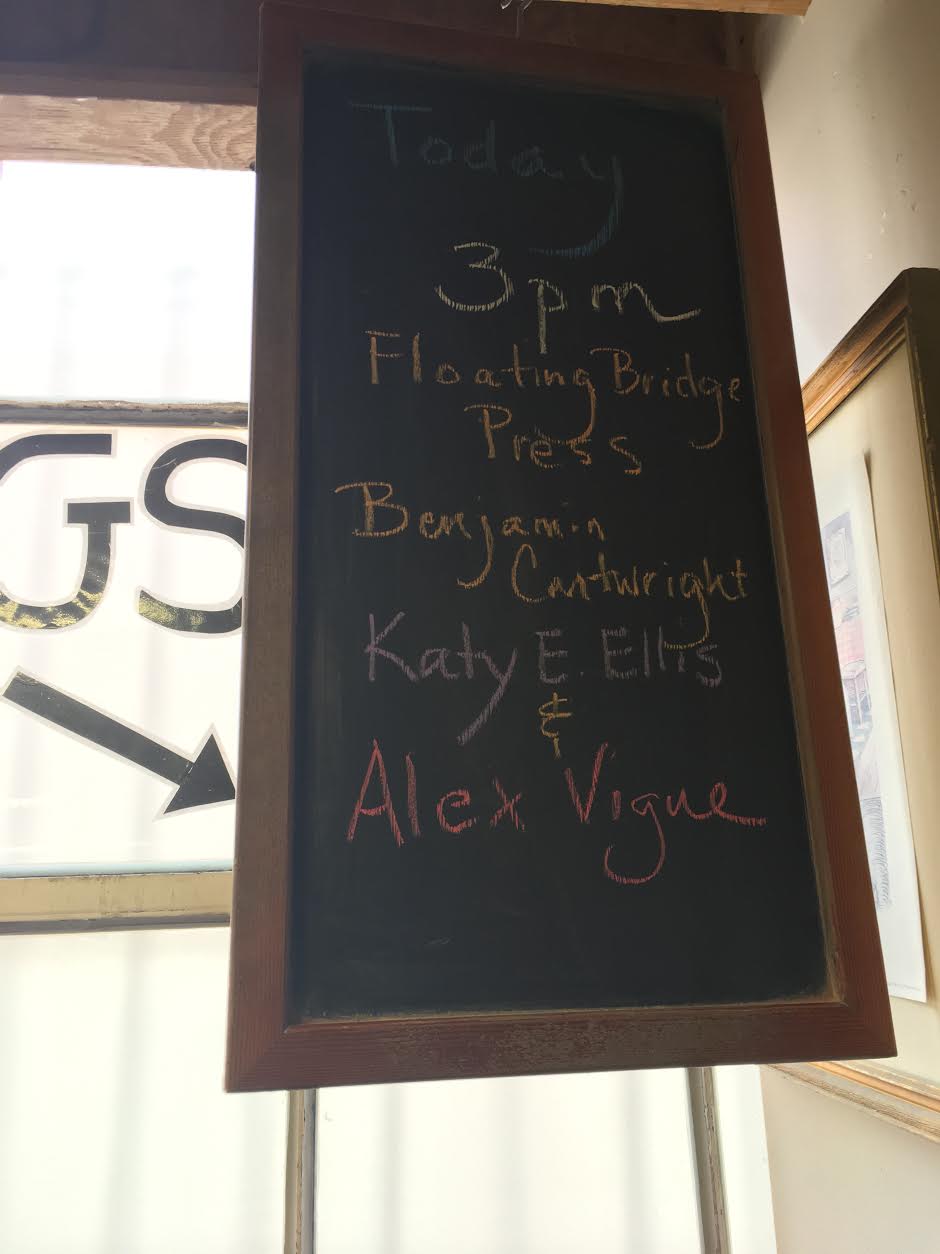 Today
3pm
Floating Bridge
Press
Benjamin
Cartwright
Katy E. Ellis
&
Alex Vigue
GS